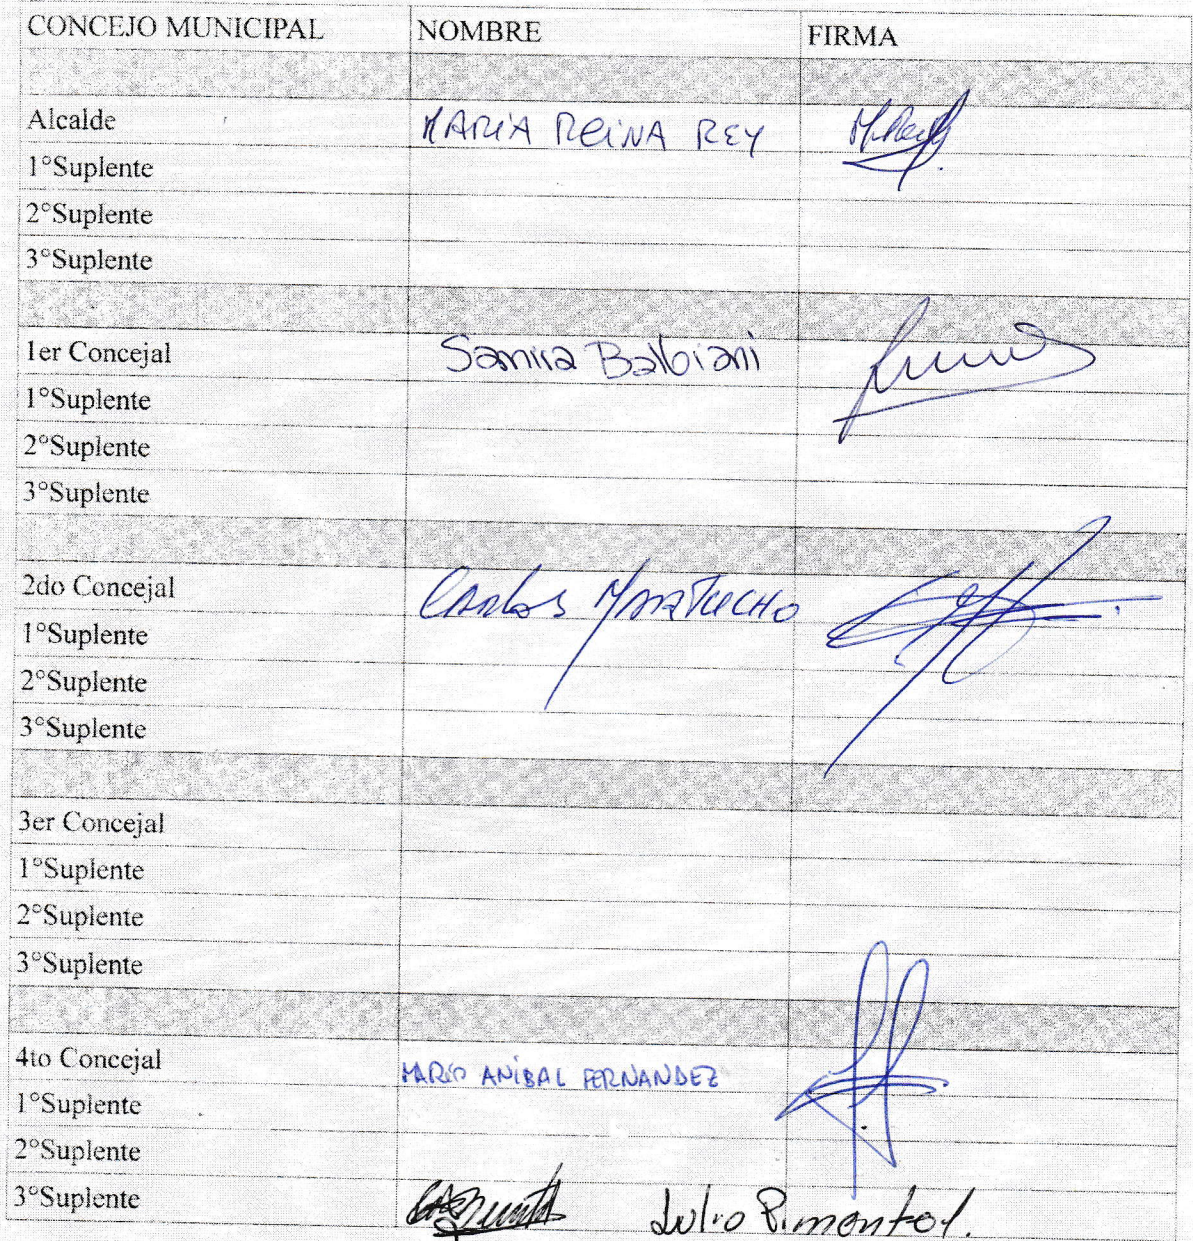 CONCEJO MUNICIPAL NOMBRE FIRMA
Alcalde MARIA REINA REY
1°Suplente
2°Suplente
3°Suplente
1er Concejal Samira Balbiani
1°Suplente
2°Suplente
3°Suplente
2do Concejal Carlos
1°Suplente
2°Suplente
3°Suplente
3er Concejal
1°Suplente
2°Suplente
3°Suplente
4to Concejal MARIO ANIBAL FERNANDEZ
1°Suplente
2°Suplente
3°Suplente Julio Pimentel.